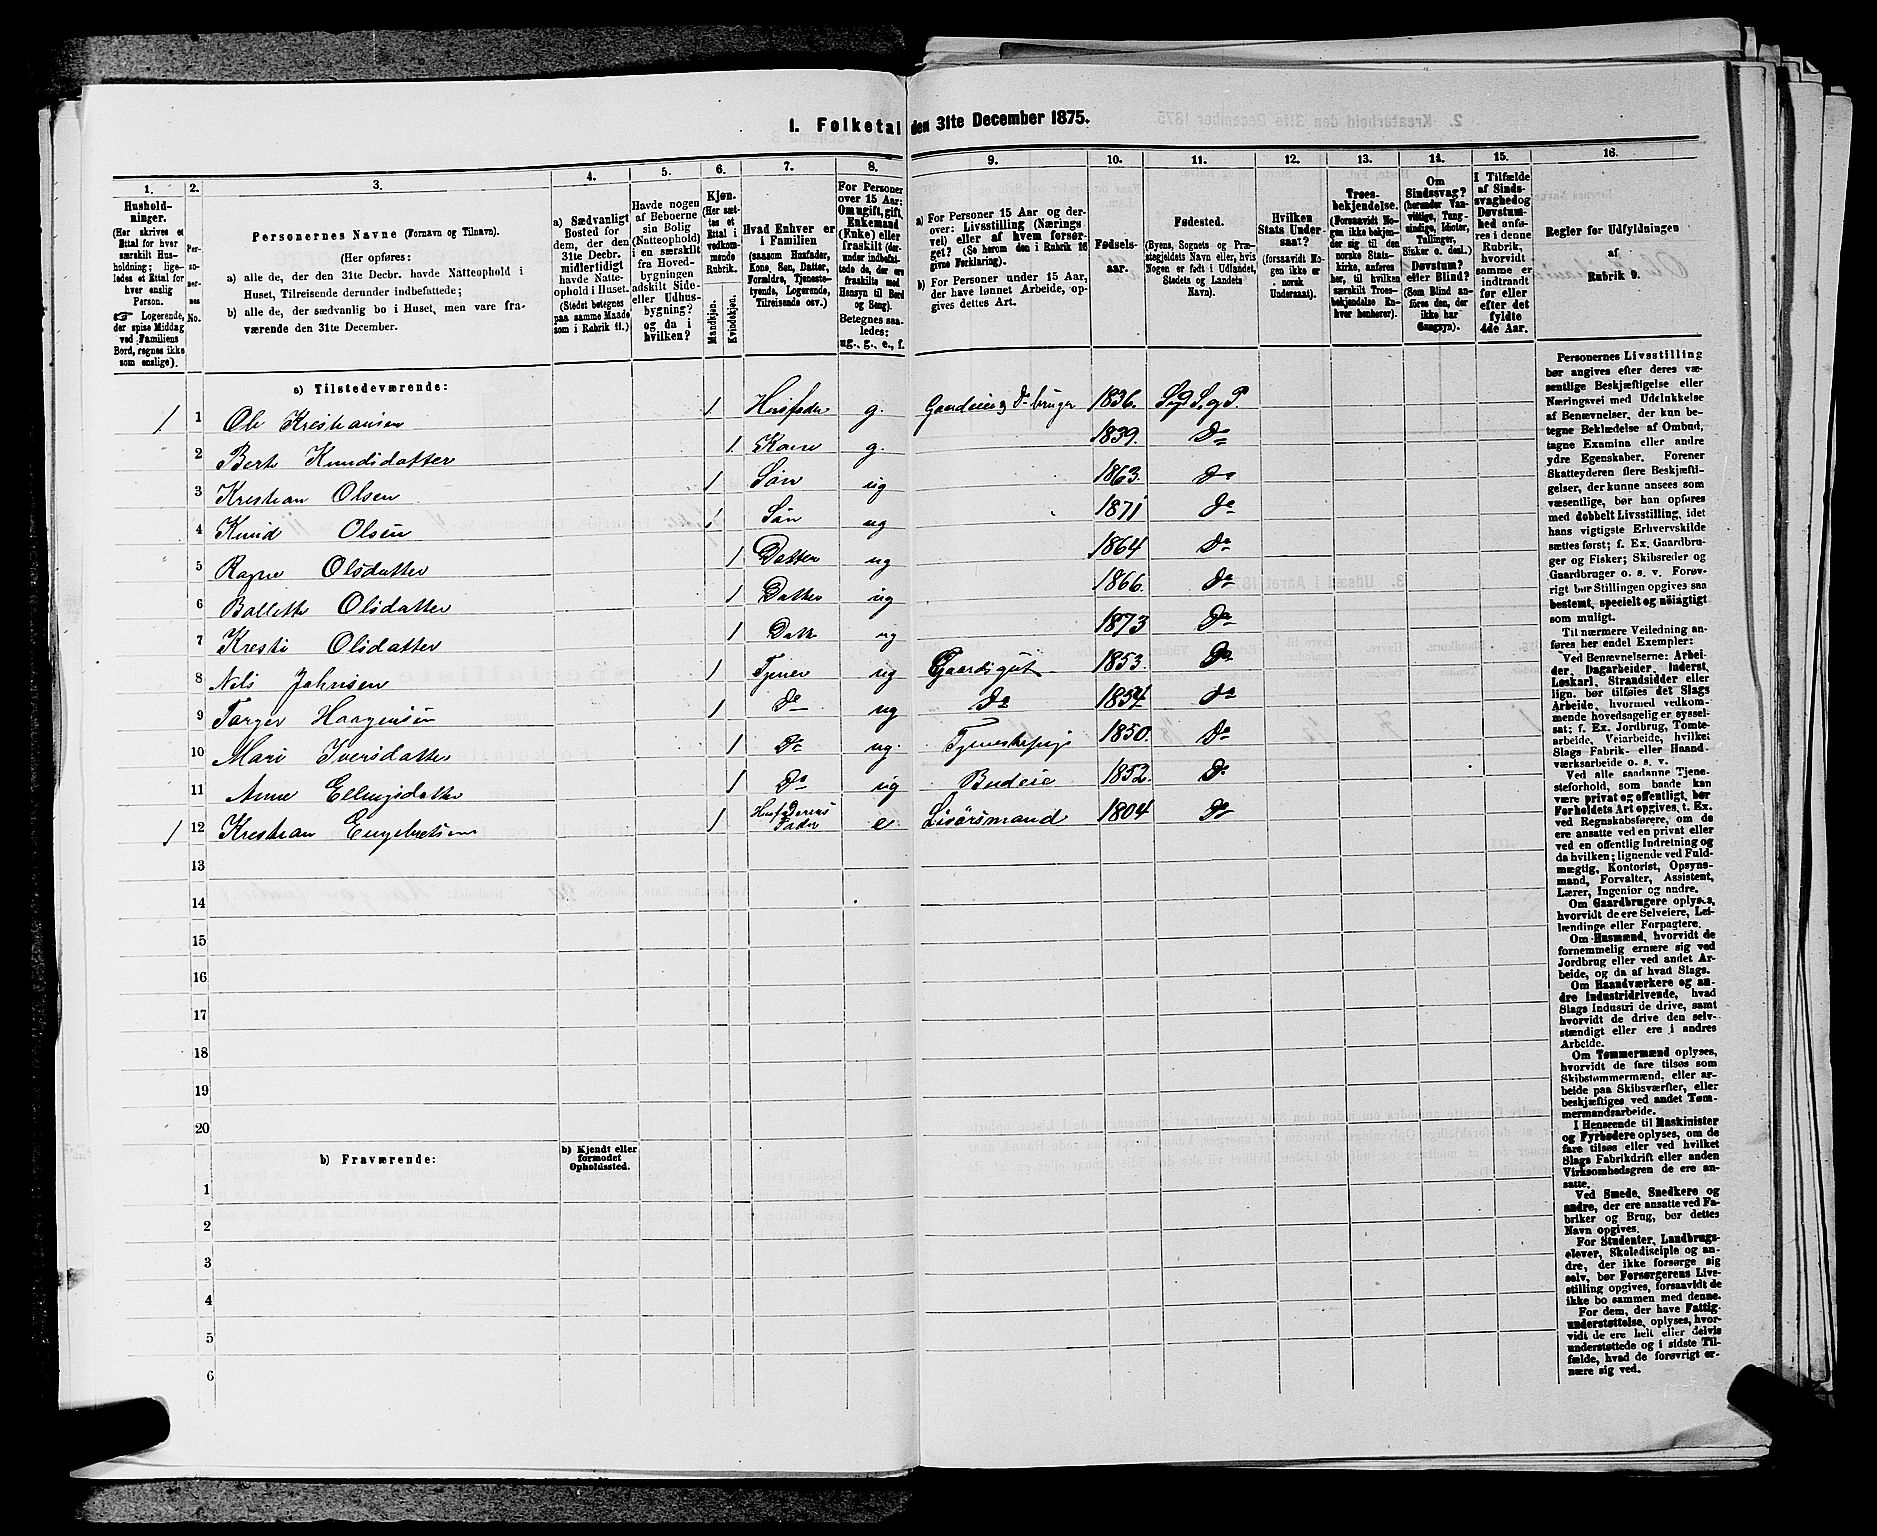 1. Folketal den 31te December 1875.
1. 2. 3. 4. 5. 6. 7. 8. 9. 10. 11. 12. 13. 14. 15. 16.
Hushold-
ninger.
(Her skrives et
Ettal for hver
særskilt Hus-
holdning; lige-
ledes et Ettal for
hver enslig
Person.
☞ Logerende,
der spise Middag
ved Familiens
Bord, regnes ikke
som enslige).
Per-
so-
ner-
nes
No.
Personernes Navne (Fornavn og Tilnavn).
(Her opføres:
a) alle de, der den 31te Decbr. havde Natteophold i
Huset, Tilreisende derunder indbefattede;
b) alle de, der sædvanlig bo i Huset, men vare fra-
værende den 31te December.
a) Sædvanligt
Bosted for
dem, der den
31te Decbr.
midlertidigt
havde Natte-
ophold i Huset.
(Stedet betegnes
paa samme Maade
som i Rubrik 11.)
Havde nogen
af Beboerne
sin Bolig
(Natteophold)
i en særskilt
fra Hoved-
bygningen
adskilt Side-
eller Udhus-
bygning?
og da i
hvilken?
Kjøn.
(Her sæt-
tes et
Ettal i
vedkom-
mende
Rubrik.
Mandkjøn.
Kvindekjøn.
Hvad Enhver er
i Familien
(saasom Husfader,
Kone, Søn, Datter,
Forældre, Tjeneste-
tyende, Logerende,
Tilreisende osv.)
For Personer
over 15 Aar:
Om ugift, gift,
Enkemand
(Enke) eller
fraskilt (der-
under indbefat-
tede de, der ere
fraskilte med
Hensyn til Bord
og Seng).
Betegnes saa-
ledes:
ug., g., e., f.
a) For Personer 15 Aar og der-
over: Livsstilling (Nærings-
vei) eller af hvem forsør-
get? (Se herom den i Rubrik 16
givne Forklaring).
b) For Personer under 15 Aar,
der have lønnet Arbeide, op-
gives dettes Art.
Fødsels-
aar.
Fødested.
(Byens, Sognets og Præ-
stegjeldets Navn eller, hvis
Nogen er født i Udlandet,
Stedets og Landets
Navn).
Hvilken
Stats Under-
saat?
(forsaavidt No-
gen ikke er
norsk
Undersaat).
Troes-
bekjendelse.
(Forsaavidt No-
gen ikke bekjen-
der sig til den
norske Stats-
kirke, anføres
her, til hvilken
særskilt Troes-
bekjendelse En-
hver henhører).
Om
Sindssvag?
(herunder Van-
vittige, Tung-
sindige, Idioter,
Tullinger,
Sinker o. desl.)
Døvstum?
eller Blind?
(Som Blind an-
føres den, der
ikke har
Gangsyn).
I Tilfælde
af Sinds-
svaghed og
Døvstum-
hed anfø-
res i denne
Rubrik,
hvorvidt
samme er
indtraadt
før eller
efter det
fyldte
4de Aar.
Regler for Udfyldningen
af
Rubrik 9.
a) Tilstedeværende:
1 1 Ole Kresthansen 1 Husfader g. Gaardeier og Do bruger 1836. Sogd. S. og P.
2 Berte Knudsdatter 1 Kone g. 1839. Do
3 Kresthan Olsen 1 Søn ug 1863. Do
4 Knud Olsen 1 Søn ug 1871 Do
5 Ragne Olsdatter 1 Datter ug 1864 Do
6 Bollette Olsdatter 1 Datter ug 1866. Do
7 Kresti Olsdatter 1 Dattr ug 1873 Do
8 Nils Johnsen 1 Tjener ug Gaardsgut 1853. Do
9 Torger Haagensen 1 Do ug Do 1854. Do
10 Mari Iversdatter 1 Do ug. Tjenestepige 1850. Do
11 Anne Ellingsdatter 1 Do ug Budeie 1852. Do
1 12 Kresthan Engebretsen 1 Husfaderens Fader e Livørsmand 1804 Do
13
14
15
16
17
18
19
20
b) Fraværende:
b) Kjendt eller
formodet
Opholdssted.
1
2
3
4
5
6
Personernes Livsstilling
bør angives efter deres væ-
sentlige Beskjæftigelse eller
Næringsvei med Udelukkelse
af Benævnelser, der kun be-
tegne Beklædelse af Ombud,
tagne Examina eller andre
ydre Egenskaber. Forener
Skatteyderen flere Beskjæfti-
gelser, der kunne ansees som
væsentlige, bør han opføres
med dobbelt Livsstilling, idet
hans vigtigste Erhvervskilde
sættes først; f. Ex. Gaardbru-
ger og Fisker; Skibsreder og
Gaardbruger o. s. v. Forøv-
rigt bør Stillingen opgives saa
bestemt, specielt og nøiagtigt
som muligt.
Til nærmere Veiledning an-
føres her endel Exempler:
Ved Benævnelserne: Arbei-
der, Dagarbeider, Inderst,
Løskarl, Strandsidder eller
lign. bør tilføies det Slags
Arbeide, hvormed vedkom-
mende hovedsagelig er syssel-
sat; f. Ex. Jordbrug, Tomte-
arbeide, Veiarbeide, hvilket
Slags Fabrik- eller Haand-
værksarbeide o. s. v.
Ved alle saadanne Tjene-
steforhold, som baade kan
være privat og offentligt, bør
Forholdets Art opgives, t. Ex.
ved Regnskabsførere, om de
ere ansatte ved en privat eller
ved en offentlig Indretning og
da hvilken; lignende ved Fuld-
mægtig, Kontorist, Opsyns-
mand, Forvalter, Assistent,
Lærer, Ingeniør og andre.
Om Gaardbrugere oplyses,
hvorvidt de ere Selveiere, Lei-
lændinge eller Forpagtere.
Om Husmænd, hvorvidt de
fornemmelig ernære sig ved
Jordbrug eller ved andet Ar-
beide, og da af hvad Slags.
Om Haandværkere og an-
dre Industridrivende, hvad
Slags Industri de drive, samt
hvorvidt de drive den selv-
stændigt eller ere i andres
Arbeide.
Om Tømmermænd oplyses,
hvorvidt de fare tilsøs som
Skibstømmermænd, eller ar-
beide paa Skibsværfter, eller
beskjæftiges ved andet Tøm-
mermandsarbeide.
I Henseende til Maskinister
og Fyrbødere oplyses, om de
fare tilsøs eller ved hvilket
Slags Fabrikdrift eller anden
Virksomhedsgren de ere an-
satte.
Ved Smede, Snedkere og
andre, der ere ansatte ved Fa-
briker og Brug, bør dettes
Navn opgives.
For Studenter, Landbrugs-
elever, Skoledisciple og an-
dre, der ikke forsørge sig
selv, bør Forsørgerens Live-
stilling opgives, forsaavidt de
ikke bo sammen med denne.
For dem, der have Fattig-
understøttelse, oplyses, hvor-
vidt de ere helt eller delvis
understøttede og i sidste Til-
fælde, hvad de forøvrigt er-
nære sig ved.